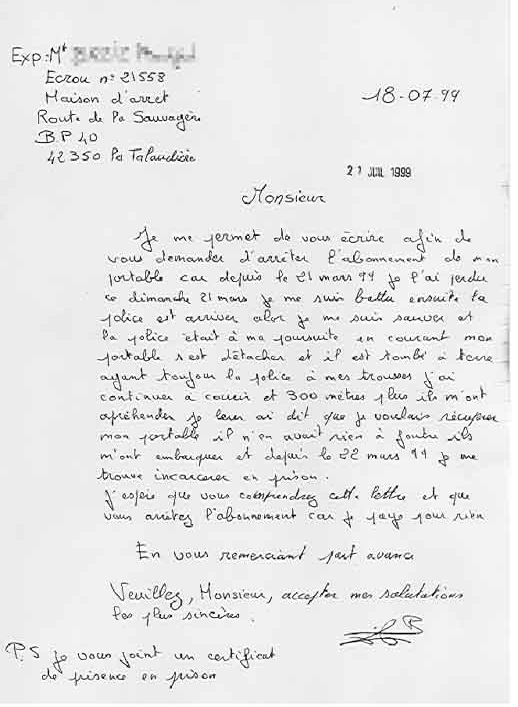 Exp: Mr
Ecrou n° 21558
Maison d'arret
Route de la Sauvagère
B.P 40
42350 la Talaudière
18-07-99
21 JUIL 1999
Monsieur
Je me permet de vous écrire afin de
vous demander d'arrêter l'abonnement de mon
portable car depuis le 21 mars 99 je l'ai perdu
ce dimanche 21 mars je me suis battu ensuite la
police est arriver alor je me suis sauver et
la police était à ma poursuite en courant mon
portable s'est détacher et il est tombé à terre
ayant toujour la police à mes trousses j'ai
continuer à courir et 300 mètres plus ils m'ont
apréhender je leur ai dit que je voulais récuperer
mon portable il n'en avait rien à foutre ils
m'ont embarquer et depuis le 22 mars 99 je me
trouve incarcerer en prison.
J'espère que vous comprendrez cette lettre et que
vous arretez l'abonnement car je paye pour rien
En vous remerciant part avance
Veuillez, Monsieur, accepter mes salutations
les plus sincères.
P.S je vous joint un certificat
de présence en prison